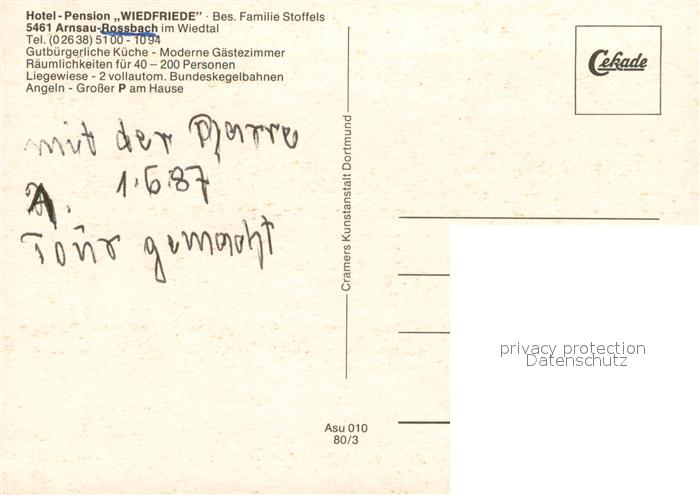 Hotel-Pension „WIEDFRIEDE" · Bes. Familie Stoffels
5461 Arnsau-Rossbach im Wiedtal
Tel. (0 26 38) 51 00 - 10 94
Gutbürgerliche Küche - Moderne Gästezimmer
Räumlichkeiten für 40 – 200 Personen
Liegewiese - 2 vollautom. Bundeskegelbahnen
Angeln - Großer P am Hause
mit der Pfarre
1.6.87
Tour gemacht
Cramers Kunstanstalt Dortmund
Cekade
Asu 010
80/3
privacy protection
Datenschutz